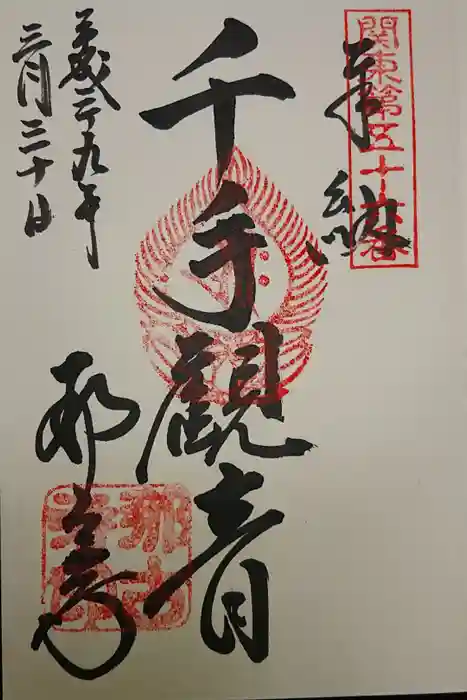 奉納
関東第五十六番
千手観音
平成二十九年
三月三十日
那古寺
那古
寺印